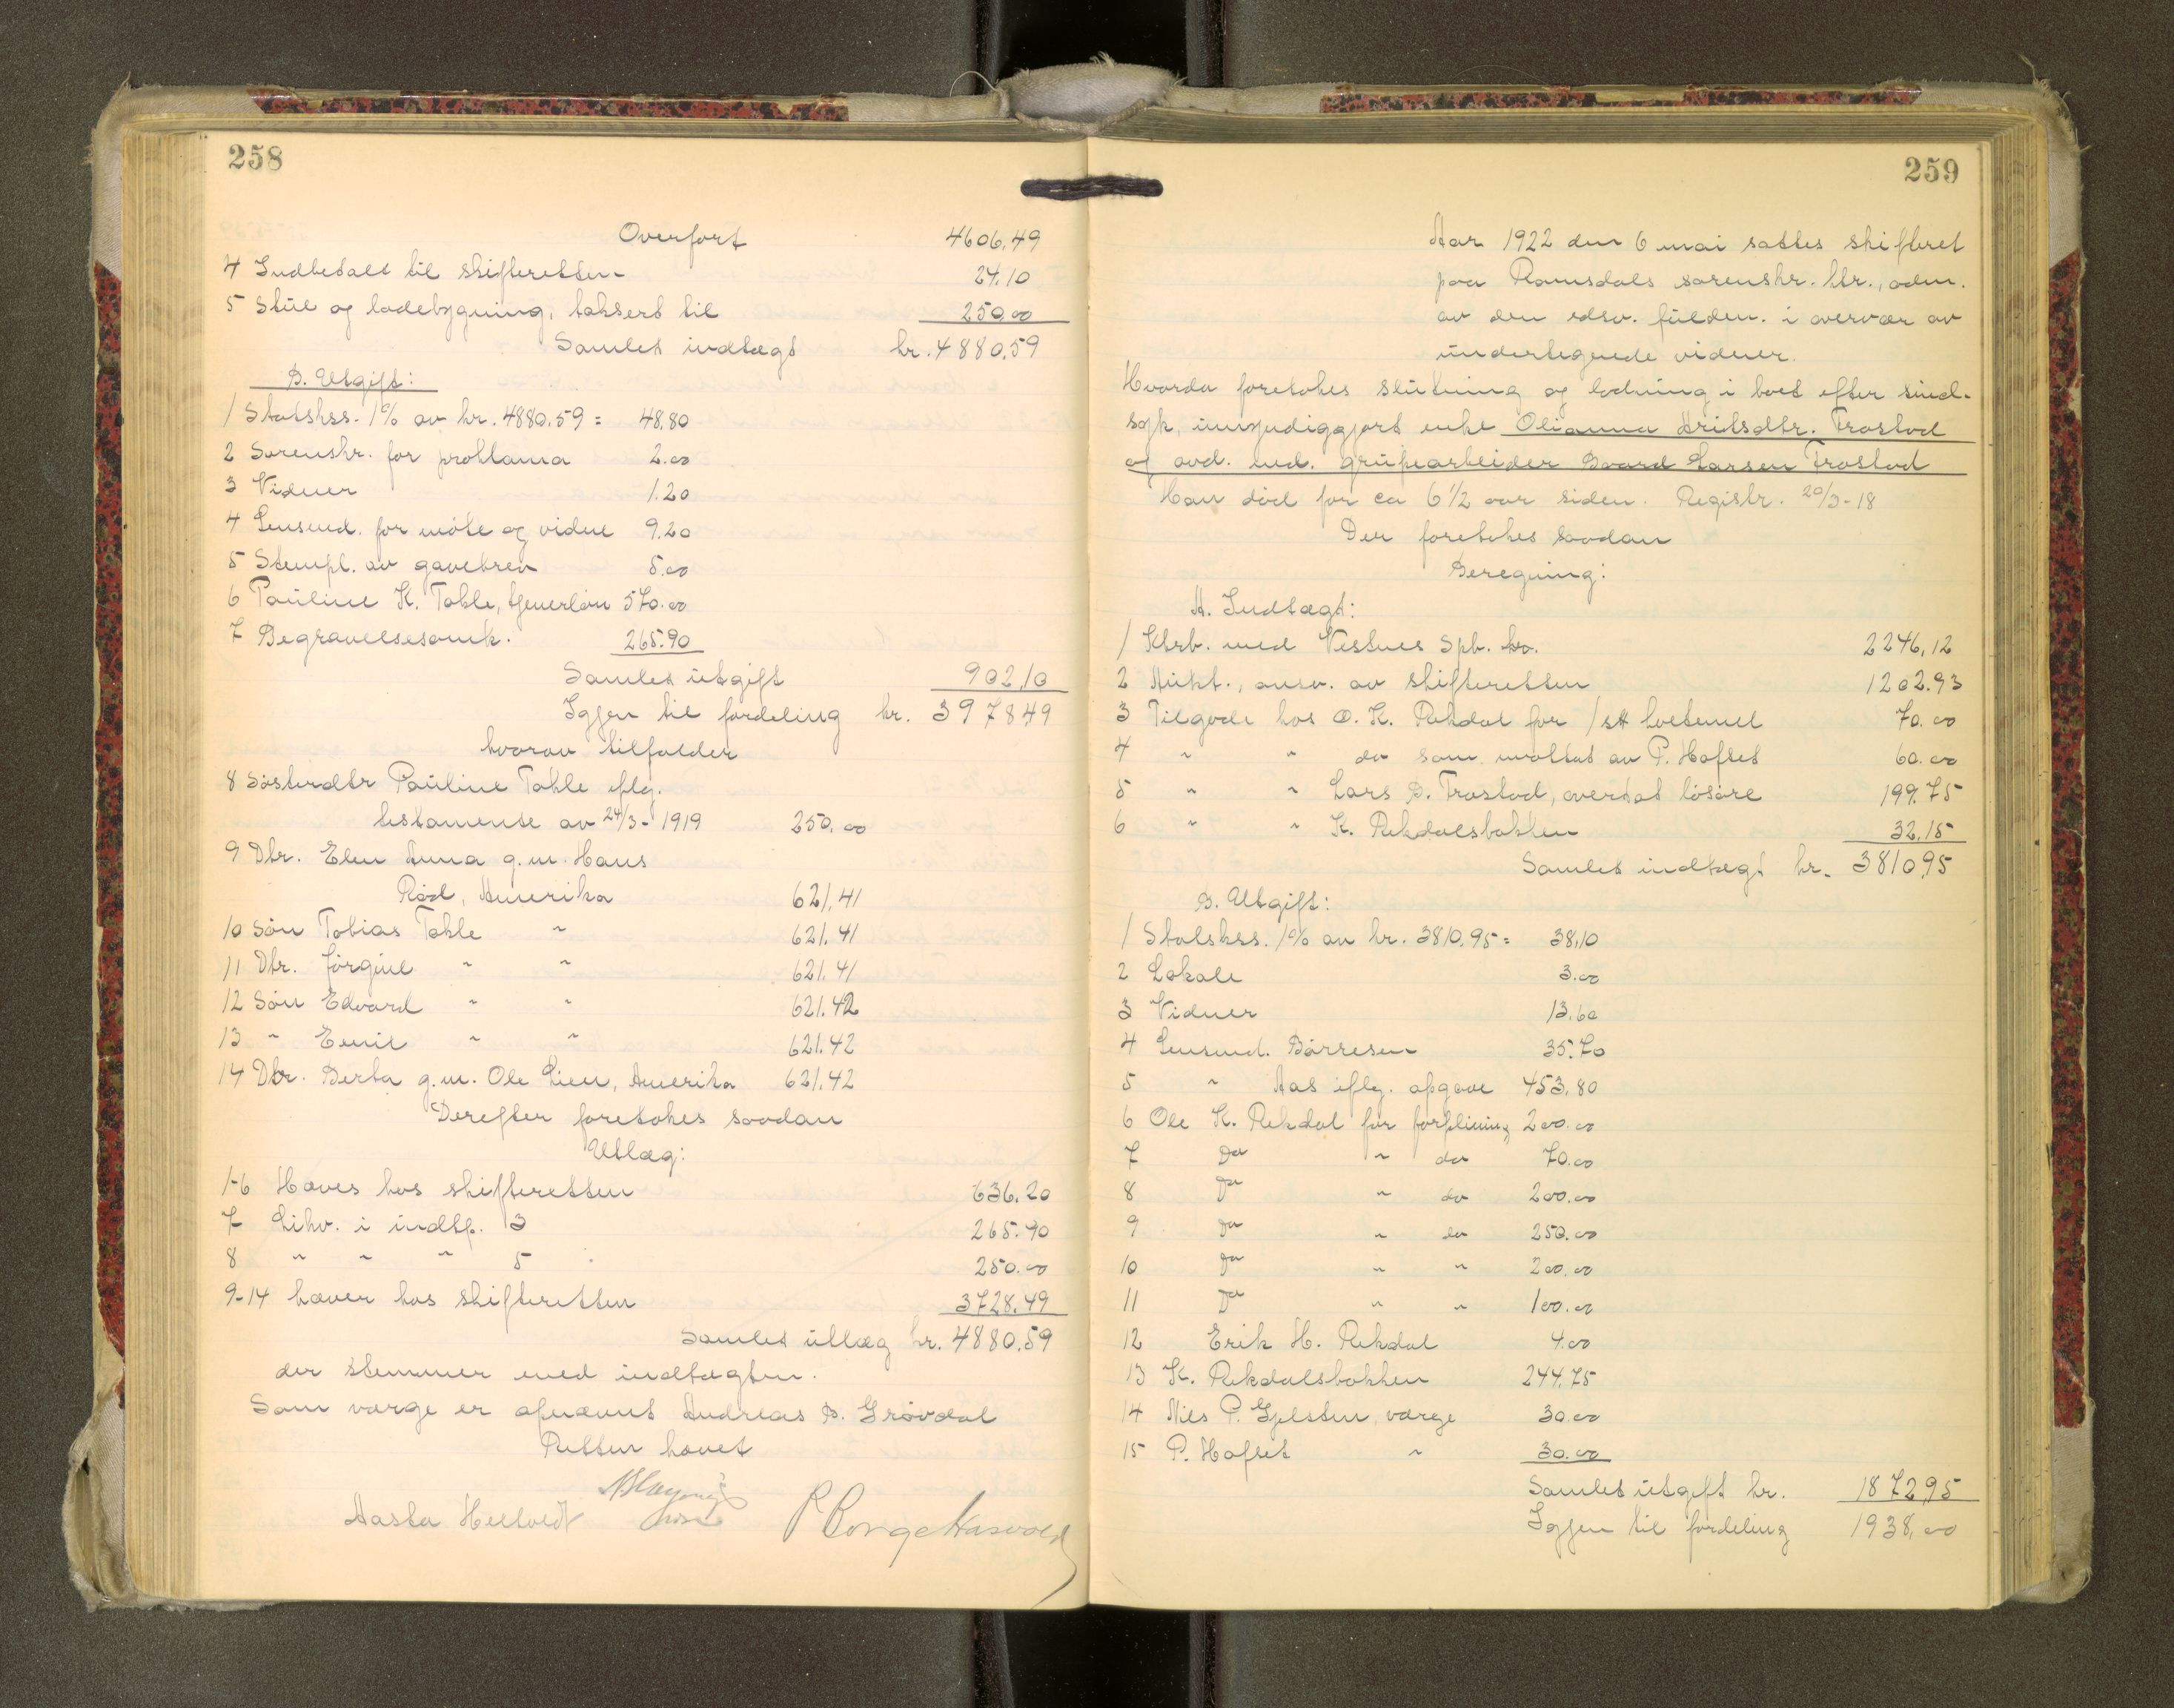 258
Overført 4606,49
4 Indbetalt til skifteretten 24.10
5 Stue og ladebygning, taksert til 250.00
Samlet indtægt kr. 4880,59
B. Utgift:
1 Statskss. 1% av kr. 4880,59 = 48,80
2 Sorenskr. for proklama 2.00
3 Vidner 1.20
4 Lensmd. for møte og vidne 9.20
5 Stempl. av gavebrev 5.00
6 Pauline K. Takle, tjenerløn 570.00
7 Begravelsesomk. 265.90
Samlet utgift 902,10
Igjen til fordeling kr. 3978,49
hvorav tilfalder
8 Søsterdtr Pauline Takle iflg.
testamente av 24/3-1919 250.00
9 Dtr. Elen Anna g.m. Hans
Rød, Amerika 621,41
10 Søn Tobias Takle " 621.41
11 Dtr. Jørgine " " 621.41
12 Søn Edvard " " 621.42
13 " Emil " " 621.42
14 Dtr. Berta g.m. Ole Lien, Amerika 621.42
Derefter foretokes saadan
Utlæg:
1-6 Hæves hos skifteretten 636.20
7 Likv. i indtp. 3 265.90
8 " " " 5 250.00
9-14 hæver hos skifteretten 3728.49
Samlet utlæg kr. 4880.59
der stemmer med indtægten.
Som værge er opnævnt Andreas B. Grøvdal
Retten hævet
Aasta
259
Aar 1922 den 6 mai sattes skifteret
paa Romsdals sorenskr. ktr., adm.
av den edsv. fuldm. i overvær av
undertegnede vidner.
Hvorda foretokes slutning og lodning i boet efter sind-
syk, umyndiggjort enke Olianna Eriksdtr. Trostad
og avd. md. grubearbeider Baard Larsen Trostad
Han død for ca 6 1/2 aar siden. Registr. 20/3-18
Der foretokes saadan
Beregning:
A. Indtægt:
1 Ktrb. med Vestnes Spb. kr. 2246,12
2 Aukt., ansv. av skifteretten 1202.93
3 Tilgode hos O. K. Rekdal for 1 stk 70.00
4 " " do som mottat av P. Hafset 60.00
5 " " Lars B. Trostad, overtat løsøre 199.75
6 " " K. Rekdalsbakken 32,15
Samlet indtægt kr. 3810,95
B. Utgift:
1 Statskss. 1% av kr. 3810.95 = 38,10
2 Lokale 3.00
3 Vidner 13.60
4 Lensmd. Børresen 35.70
5 " Aas iflg. opgave 453.80
6 Ole K. Rekdal for forpleining 200.00
7 Do " do 70.00
8 Do " do 200.00
9 Do " do 250.00
10 Do " " 200.00
11 Do " " 100.00
12 Erik H. Rekdal 4.00
13 K. Rekdalsbakken 244.75
14 Nils P. Gjelsten, værge 30.00
15 P. Hafset " 30.00
Samlet utgift kr. 1872,95
Igjen til fordeling 1938,00